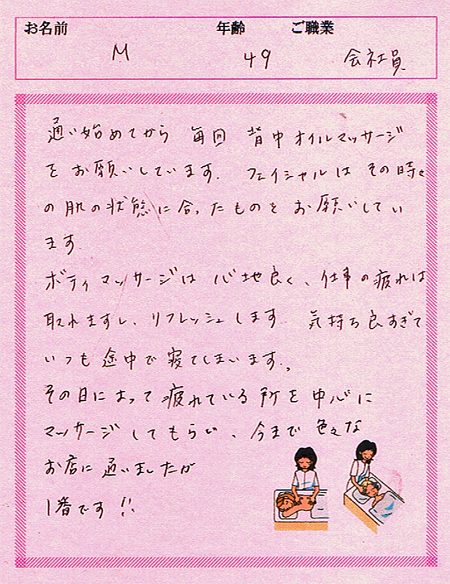 お名前 年齢 ご職業
M 49 会社員
通い始めてから 毎回 背中オイルマッサージ
をお願いしています。フェイシャルは その時々
の肌の状態に合ったものを お願いしてい
ます。
ボディマッサージは 心地良く、仕事の疲れは
取れますし、リフレッシュします 気持ち良すぎて
いつも 途中で 寝てしまいます。
その日によって 疲れている 所を 中心に
マッサージ してもらい、今まで 色々な
お店に 通いましたが
1番です!!